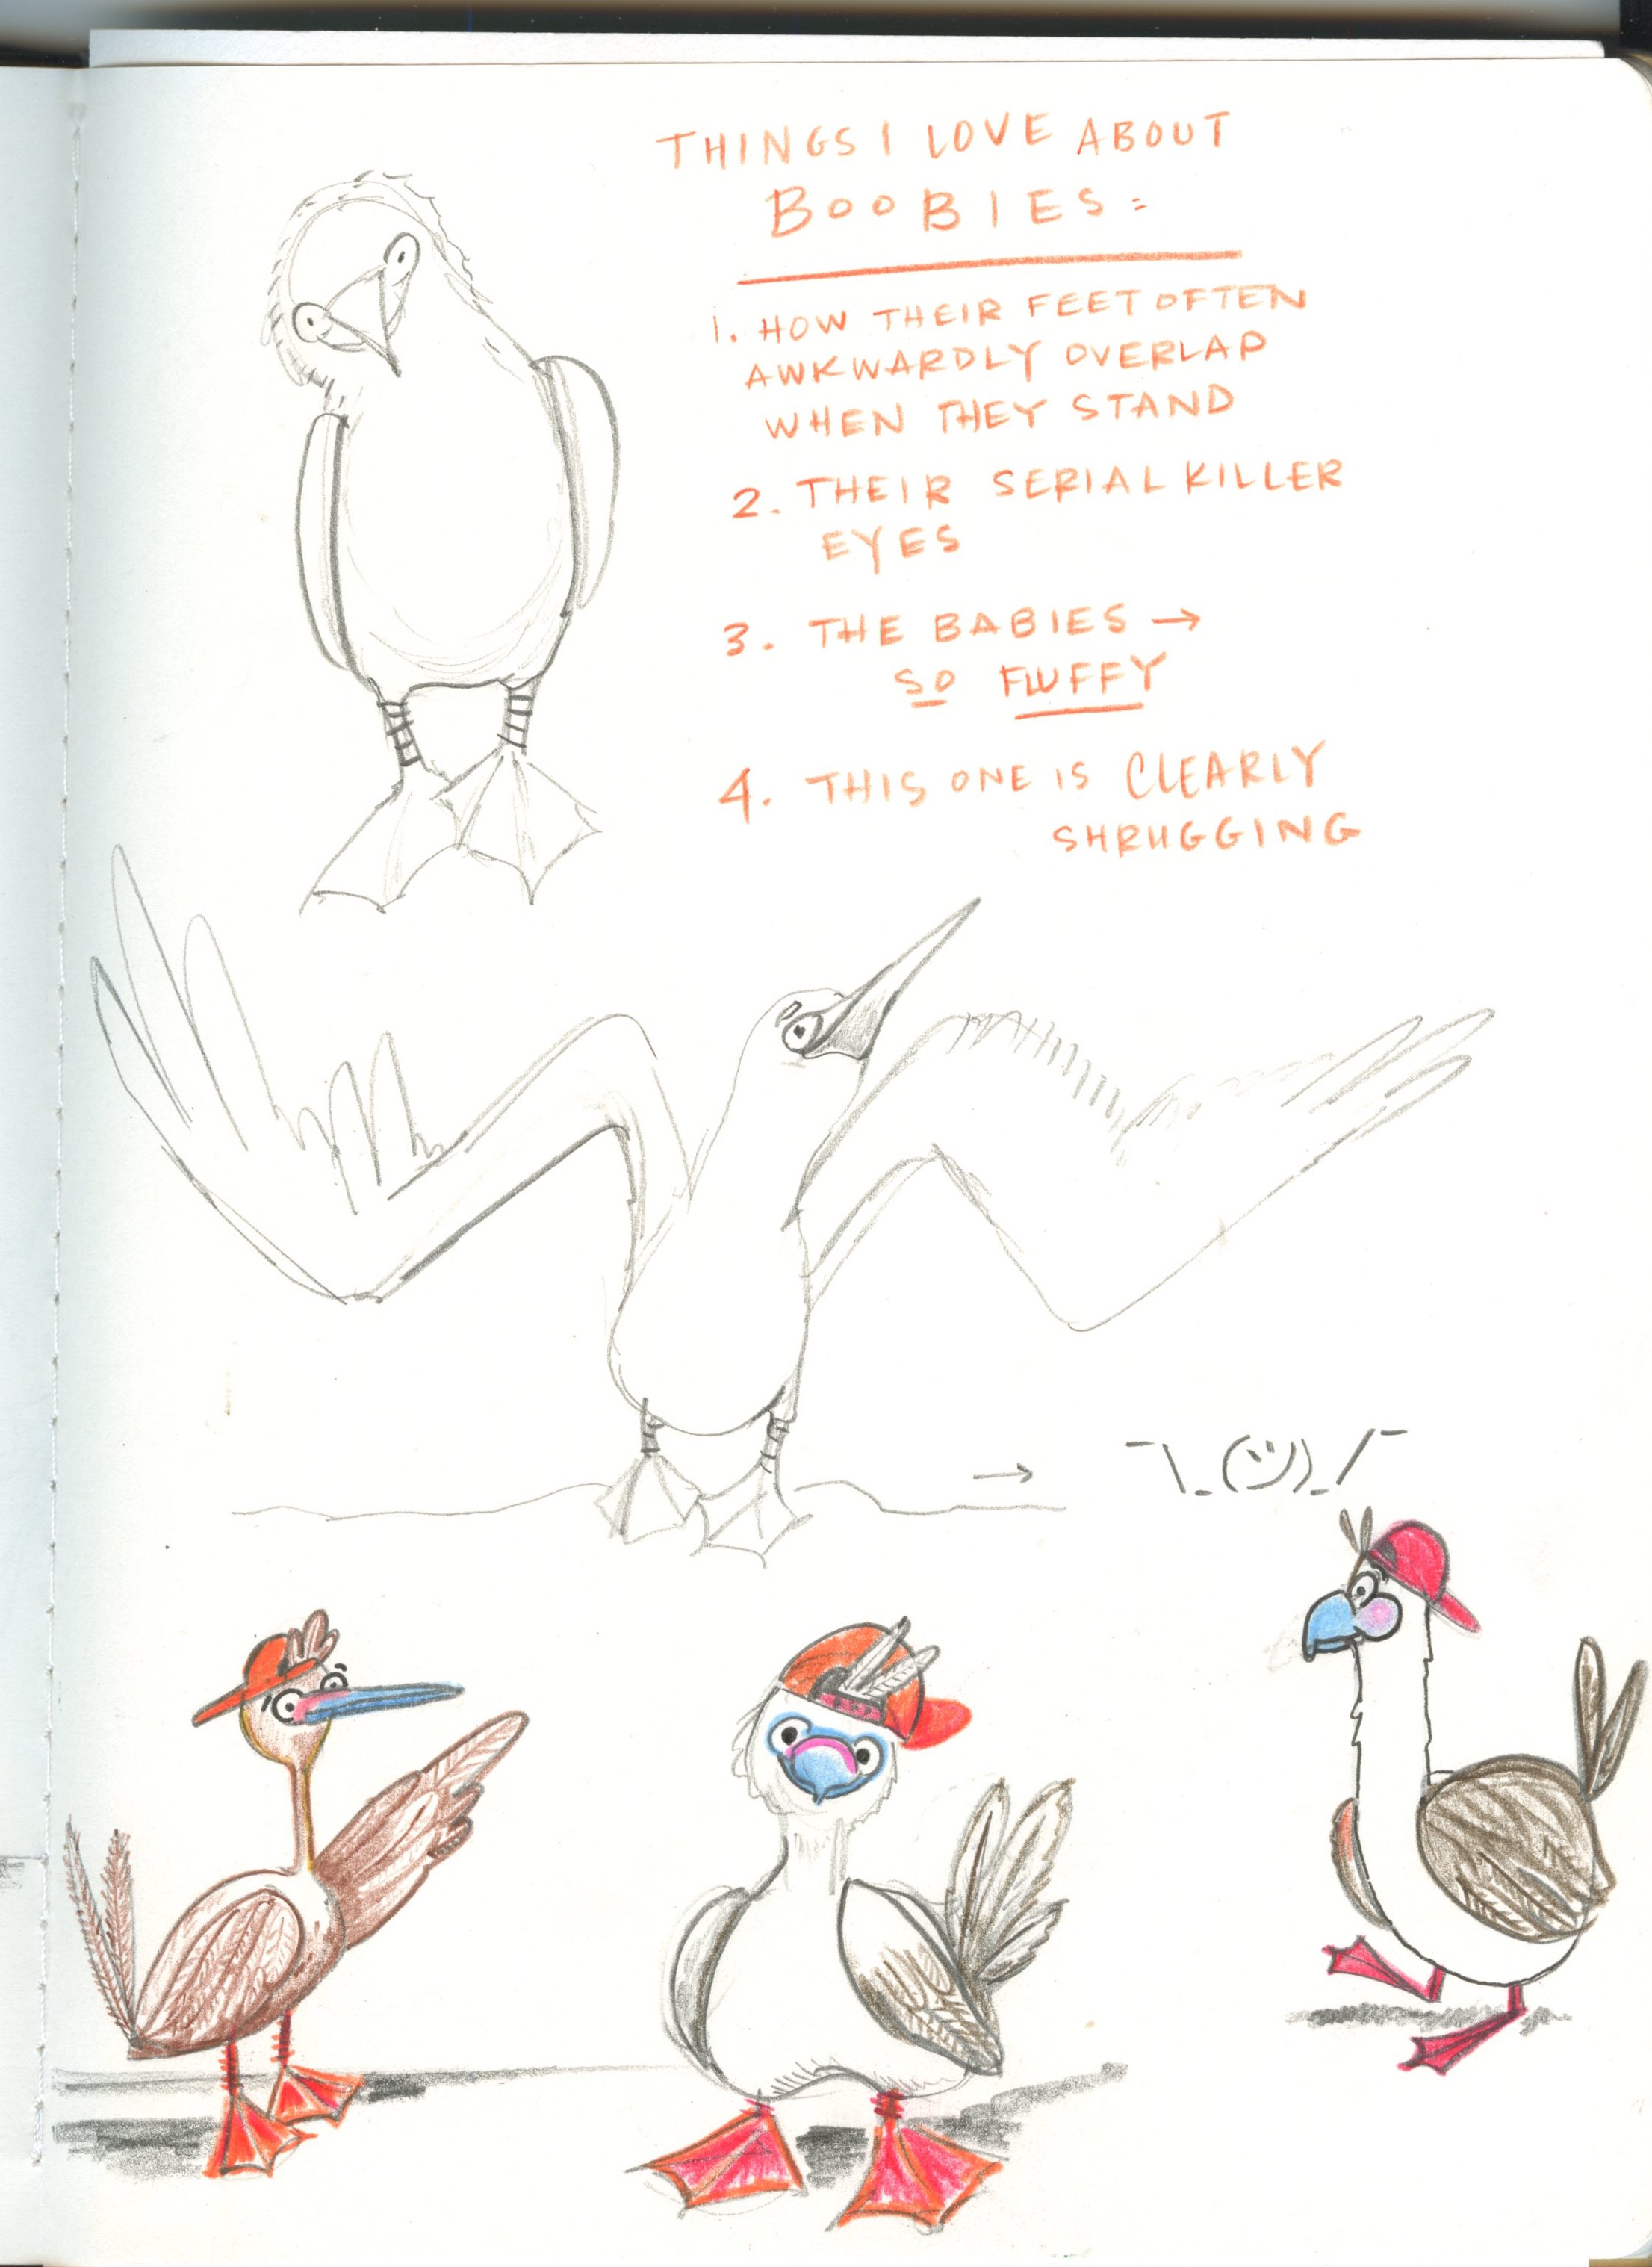 THINGS I LOVE ABOUT
BOOBIES:
1. HOW THEIR FEET OFTEN
AWKWARDLY OVERLAP
WHEN THEY STAND
2. THEIR SERIAL KILLER
EYES
3. THE BABIES →
SO FLUFFY
4. THIS ONE IS CLEARLY
SHRUGGING
→ ¯\_(ツ)_/¯